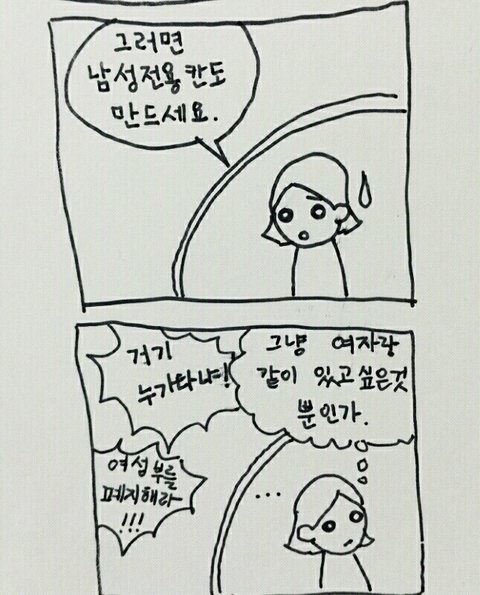 그러면
남성전용칸도
만드세요.
거기
누가타냐!
그냥 여자랑
같이 있고싶은것
뿐인가.
여성부를
폐지해라
!!!
...